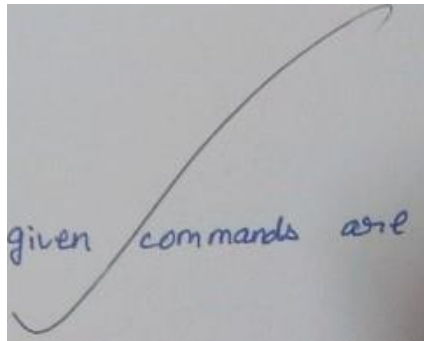 given commands are